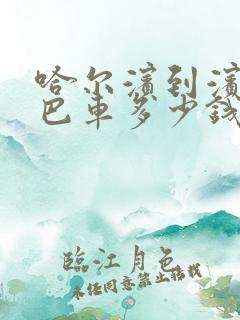 哈尔滨到滨
巴车多少钱
臨江月色
未经同意禁止搭载